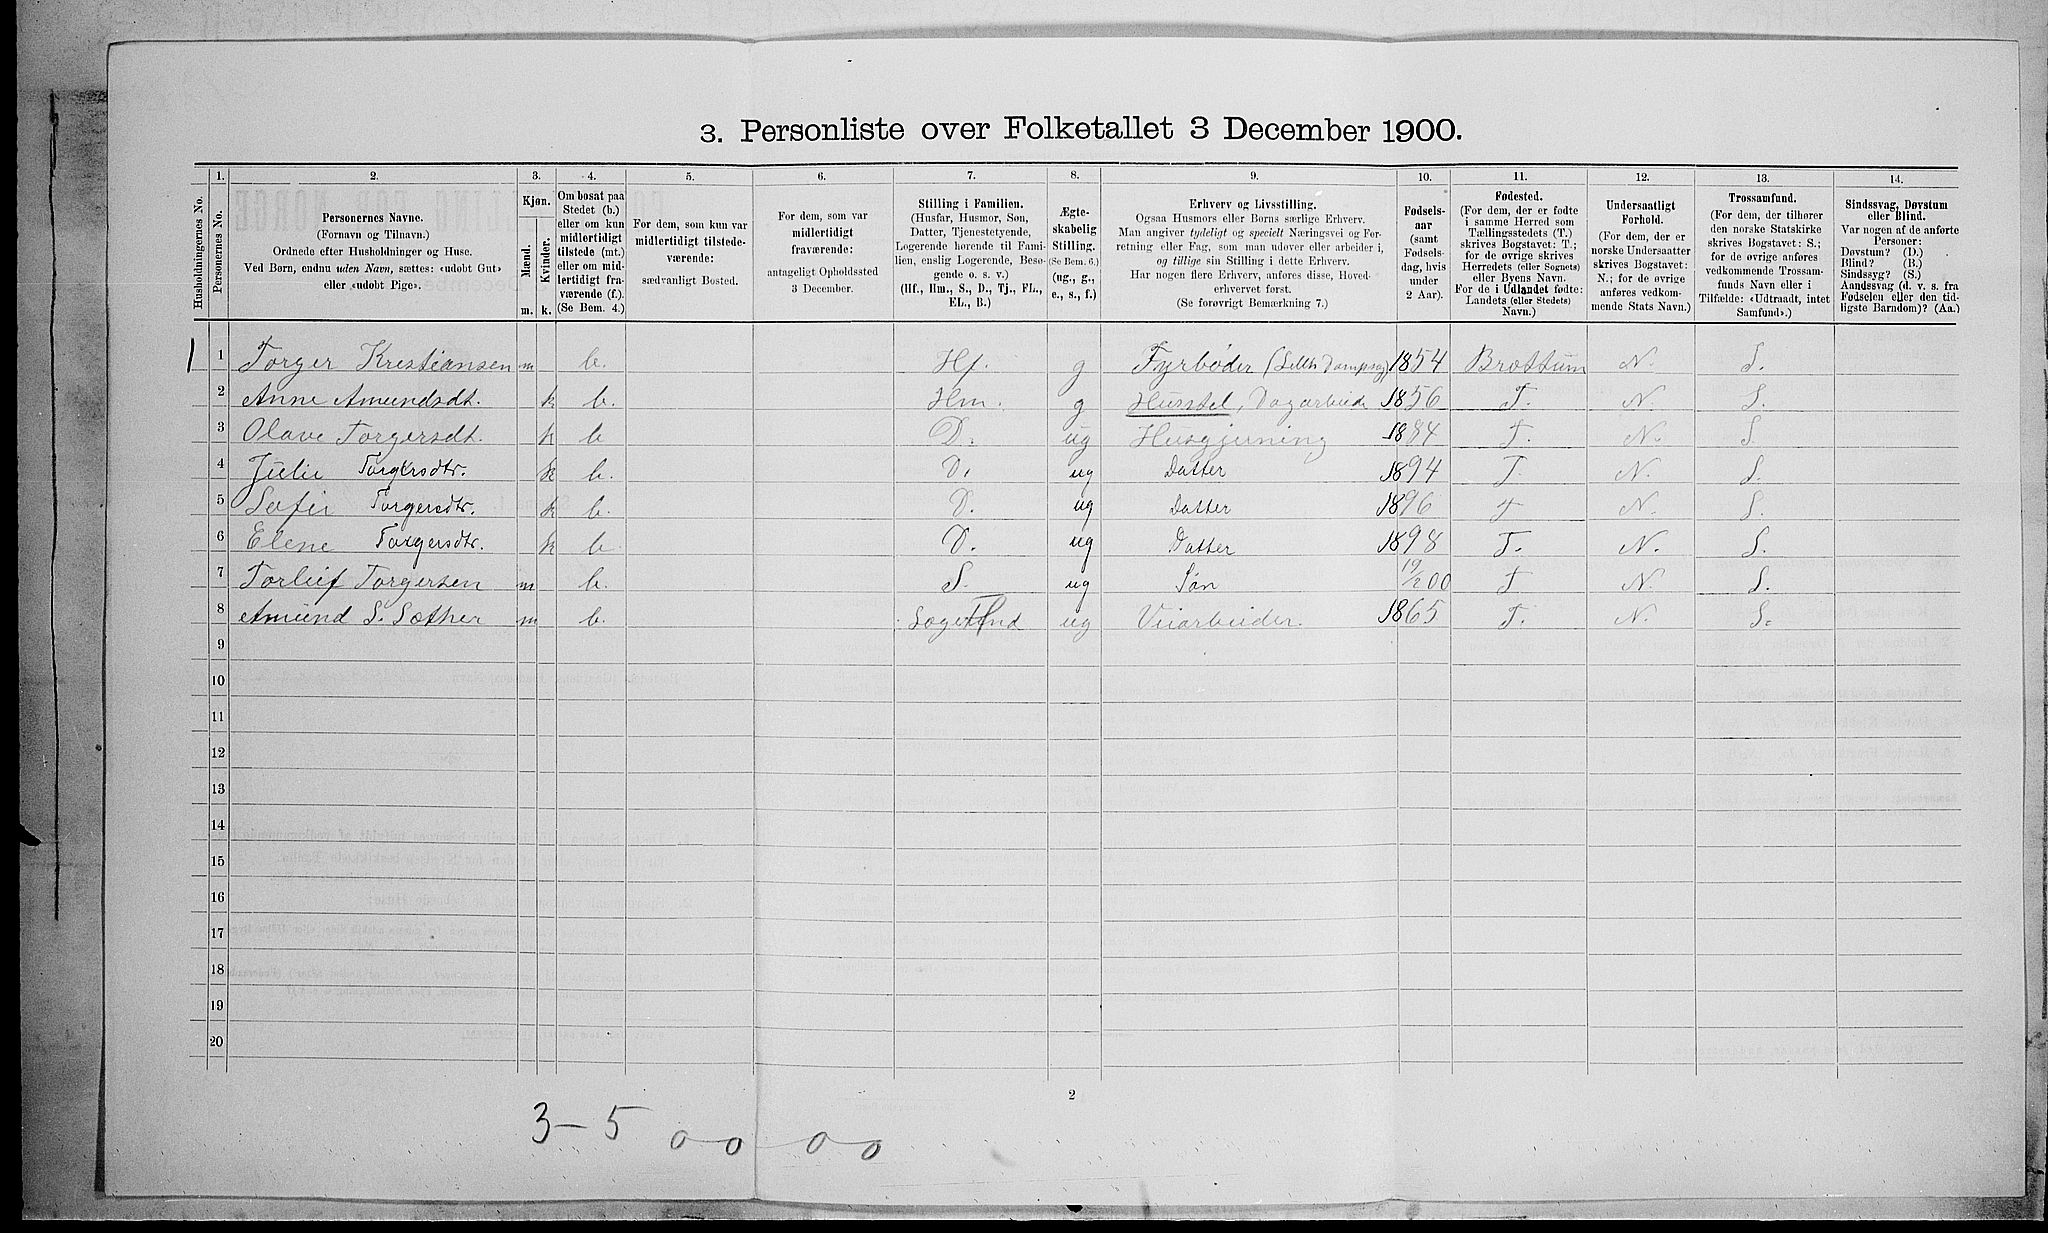 3. Personliste over Folketallet 3 December 1900.
Husholdningernes No.
1.
Personernes No.
2.
Personernes Navne.
(Fornavn og Tilnavn.)
Ordnede efter Husholdninger og Huse.
Ved Børn, endnu uden Navn, sættes: «udobt Gut»
eller «udobt Pige».
3.
Kjøn.
Mænd.
Kvinder.
m. k.
4.
Om bosat paa
Stedet (b.)
eller om kun
midlertidigt
tilstede (mt.)
eller om mid-
lertidigt fra-
værende (f.).
(Se Bem. 4.)
5.
For dem, som kun var
midlertidigt tilstede-
værende:
sædvanligt Bosted.
6.
For dem, som var
midlertidigt
fraværende:
antageligt Opholdssted
3 December.
7.
Stilling i Familien.
(Husfar, Husmor, Søn,
Datter, Tjenestetyende,
Logerende hørende til Fami-
lien, enslig Logerende, Besø-
gende o. s. v.)
(Hf., Hm., S., D., Tj., FL.,
EL., B.)
8.
Ægte-
skabelig
Stilling.
(Se Bem. 6.)
(ug., g.,
e., s., f.)
9.
Erhverv og Livsstilling.
Ogsaa Husmors eller Børns særlige Erhverv.
Man angiver tydeligt og specielt Næringsvei og For-
retning eller Fag, som man udover eller arbeider i,
og tillige sin Stilling i dette Erhverv.
Har nogen flere Erhverv, anføres disse, Hoved-
erhvervet først.
(Se forøvrigt Bemærkning 7.)
10.
Fødsels-
aar
(samt
Fødsels-
dag, hvis
under
2 Aar).
11.
Fødested.
(For dem, der er fødte
i samme Herred som
Tællingsstedets (T.)
skrives Bogstavet: T.;
for de øvrige skrives
Herredets (eller Sognets)
eller Byens Navn.
For de i Udlandet fødte:
Landets (eller Stedets)
Navn.)
12.
Undersaatligt
Forhold.
(For dem, der er
norske Undersaatter
skrives Bogstavet:
N.; for de øvrige
anføres vedkom-
mende Stats Navn.)
13.
Trossamfund.
(For dem, der tilhører
den norske Statskirke
skrives Bogstavet: S.;
for de øvrige anføres
vedkommende Trossam-
funds Navn eller i
Tilfælde: «Udtraadt, intet
Samfund».)
14.
Sindssvag, Døvstum
eller Blind.
Var nogen af de anførte
Personer:
Døvstum? (D.)
Blind? (B.)
Sindssyg? (S.)
Aandssvag (d. v. s. fra
Fødselen eller den tid-
ligste Barndom)? (Aa.)
1 1 Torger Kristiansen m b. Hf. g Fyrbøder 1854 Brøttum N. S.
2 Anne Amundsdt. k b. Hm. g Husstel, Dagarbeide 1856 T. N. S.
3 Olave Torgersdt. k b D. ug Husgjerning 1884 T. N. S.
4 Julie Torgersdtr. k b. D. ug Datter 1894 T. N. S.
5 Sofie Torgersdtr. k b. D. ug Datter 1896 T N. S.
6 Elene Torgersdtr. k b D. ug Datter 1898 T. N. S.
7 Torleif Torgersen m b. S. ug Søn 19/2 00 T N. S.
8 Amund S. Sæther m b. ug Veiarbeider. 1865 T. N. S.
9
10
11
12
13
14
15
16
17
18
19
20
2
3-5 0-0 0-0